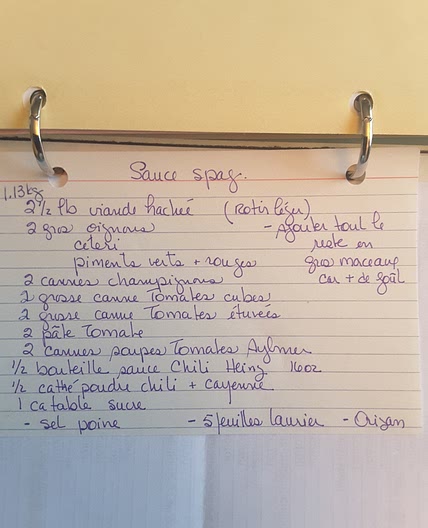 Sauce spag.
1.13 kg
2 1/2 lb viande hachée (Rotir léger)
2 gros oignons - Ajouter tout le
céleri reste en
piments verts + rouges gros morceaux
2 cannes champignons car + de goût
2 grosse canne Tomates cubes
2 grosse canne Tomates étuvées
2 pâte Tomate
2 cannes soupes Tomates Aylmer
1/2 bouteille sauce Chili Heinz 16oz
1/2 cathé poudre chili + cayenne
1 ca table sucre
- sel poivre - 5 feuilles laurier - Origan